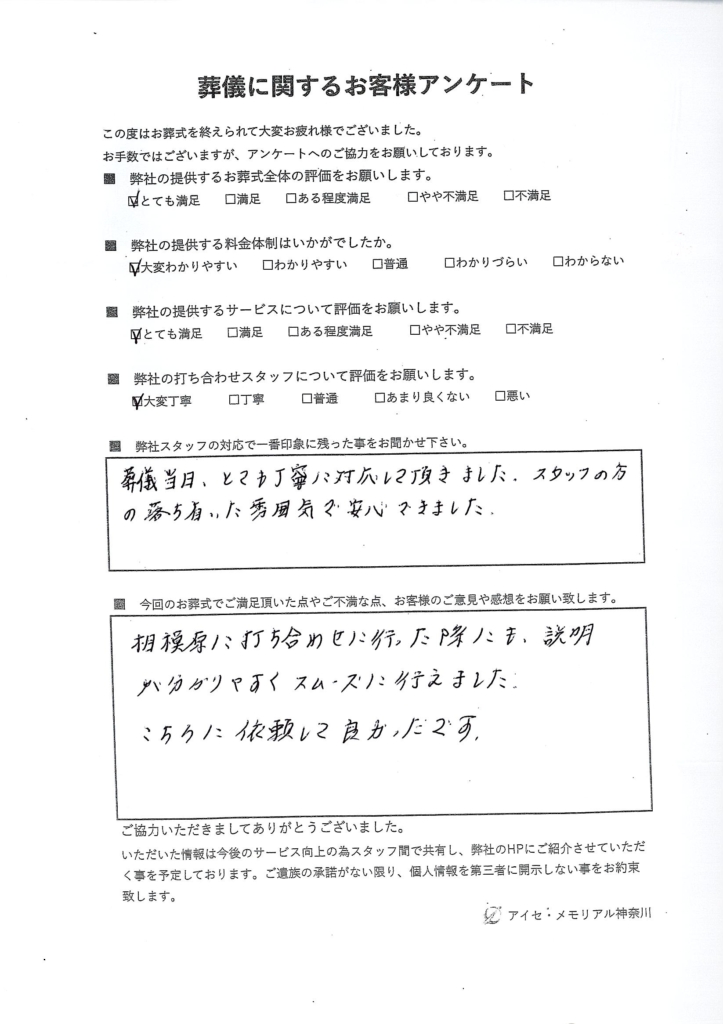 葬儀に関するお客様アンケート
この度はお葬式を終えられて大変お疲れ様でございました。
お手数ではございますが、アンケートへのご協力をお願いしております。
■ 弊社の提供するお葬式全体の評価をお願いします。
☑とても満足 □満足 □ある程度満足 □やや不満足 □不満足
■ 弊社の提供する料金体制はいかがでしたか。
☑大変わかりやすい □わかりやすい □普通 □わかりづらい □わからない
■ 弊社の提供するサービスについて評価をお願いします。
☑とても満足 □満足 □ある程度満足 □やや不満足 □不満足
■ 弊社の打ち合わせスタッフについて評価をお願いします。
☑大変丁寧 □丁寧 □普通 □あまり良くない □悪い
■ 弊社スタッフの対応で一番印象に残った事をお聞かせ下さい。
葬儀当日、とても丁寧に対応して頂きました。スタッフの方
の落ち着いた雰囲気で安心できました。
■ 今回のお葬式でご満足頂いた点やご不満な点、お客様のご意見や感想をお願い致します。
相模原に打ち合わせに行った際にも、説明
が分かりやすくスムーズに行えました。
こちらに依頼して良かったです。
ご協力いただきましてありがとうございました。
いただいた情報は今後のサービス向上の為スタッフ間で共有し、弊社のHPにご紹介させていただ
く事を予定しております。ご遺族の承諾がない限り、個人情報を第三者に開示しない事をお約束
致します。
アイセ・メモリアル神奈川